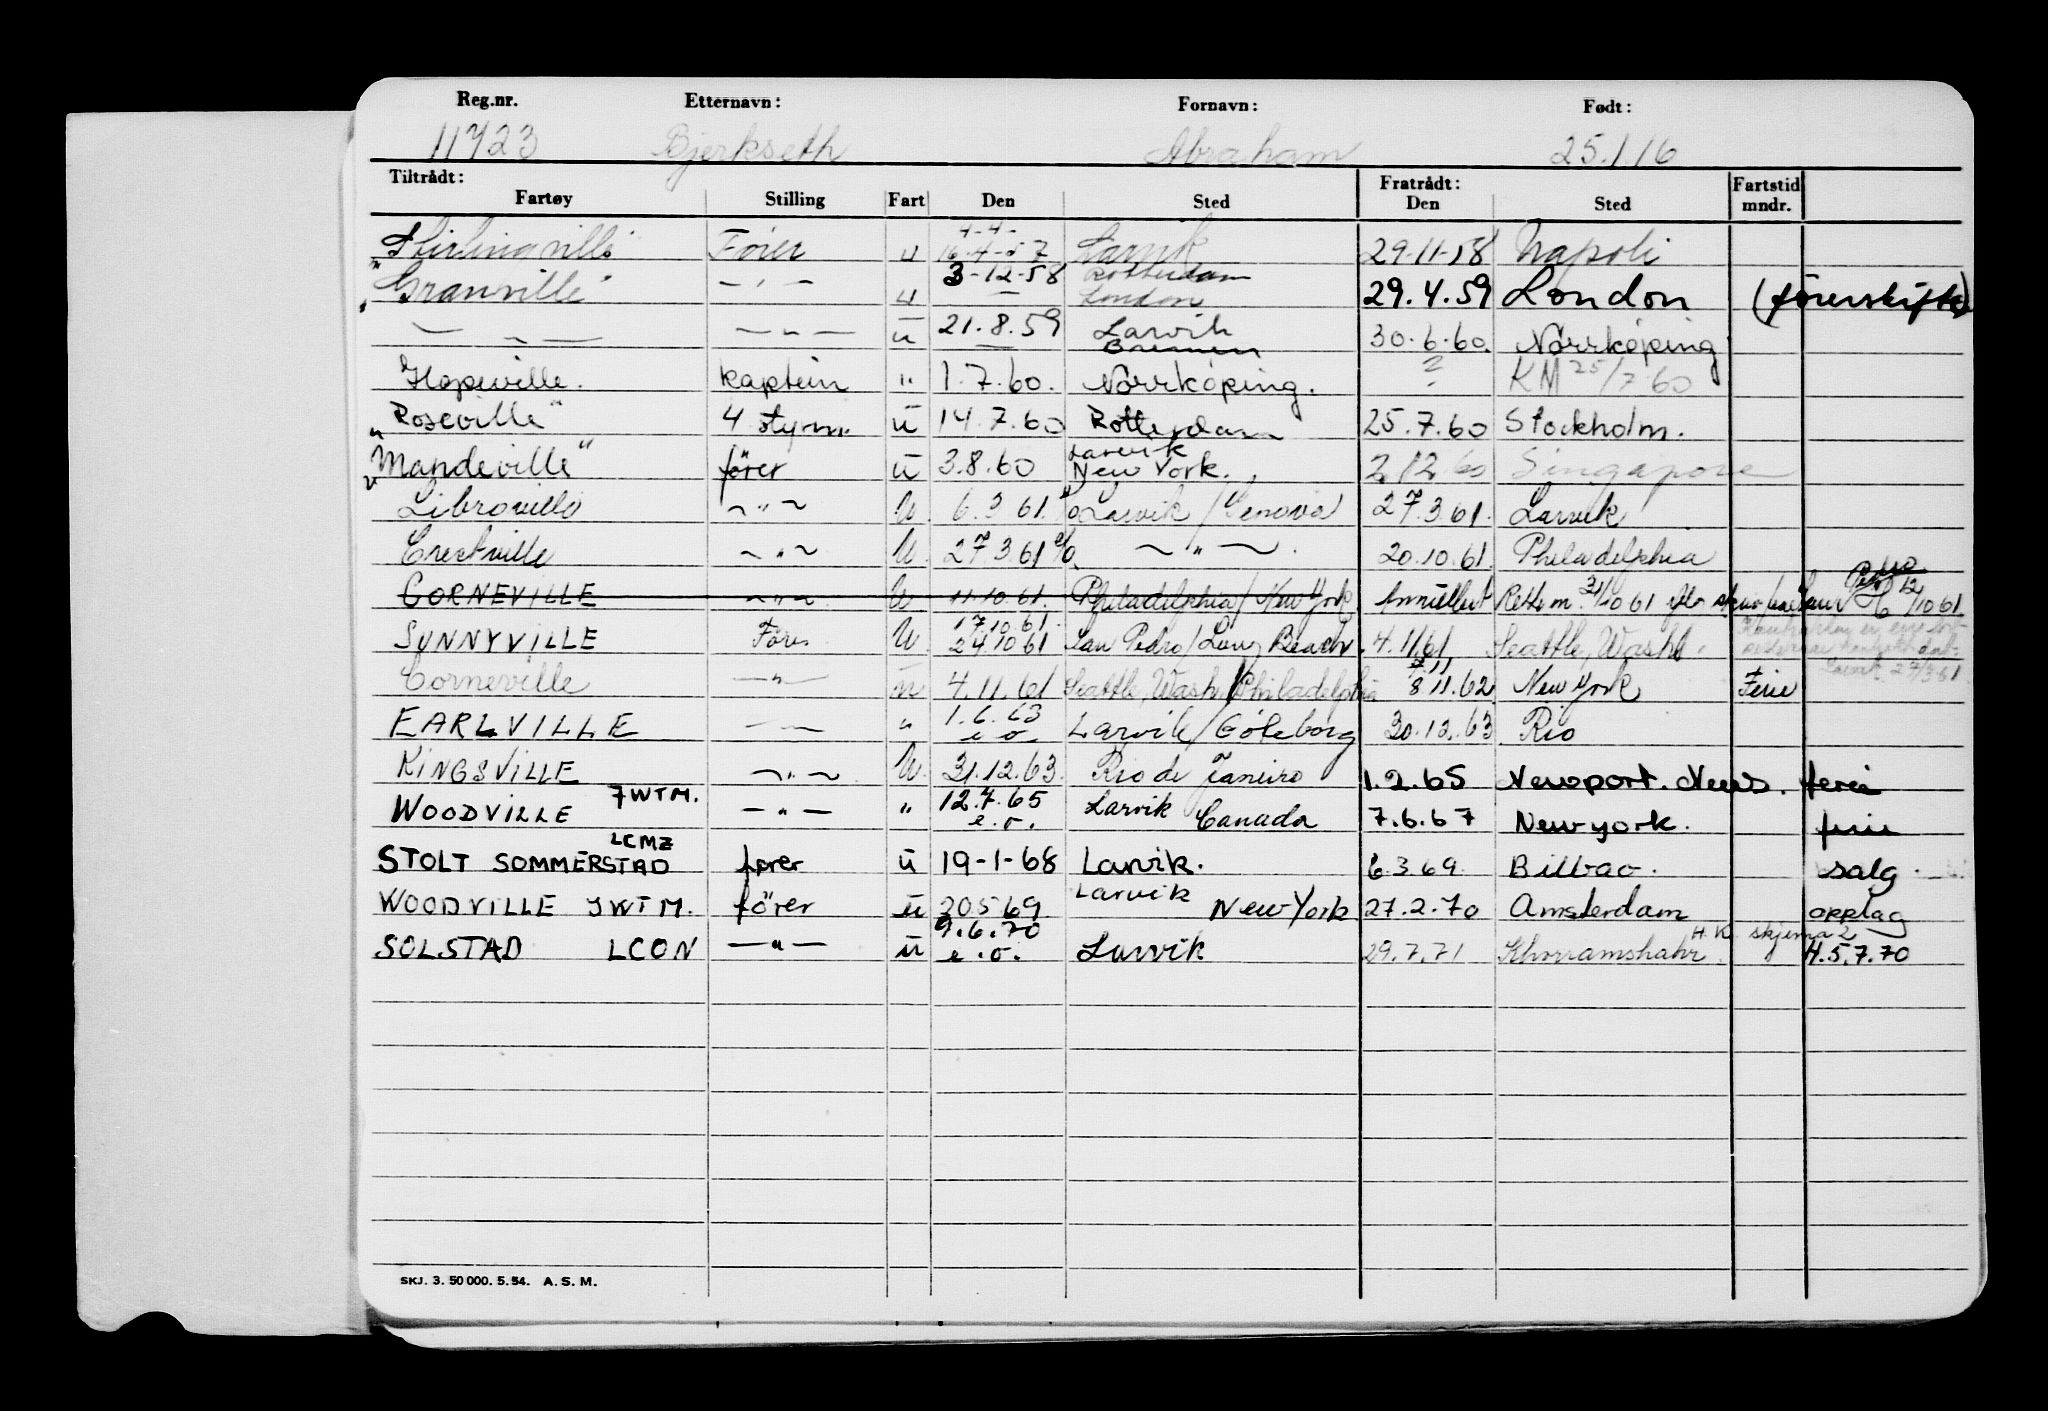 Reg.nr. Etternavn: Fornavn: Født:
11723 Bjerkseth Abraham 25.1.16
Tiltrådt: Fratrådt: Fartstid
Fartøy Stilling Fart Den Sted Den Sted mndr.
4-4-
"Stirlingville" Fører u 16.4-57 Larvik 29-11-58 Napoli
3-12-58 Rotterdam
"Granville" — " — u — London 29.4.59 London (førerskifte)
— " — — " — u 21.8.59 Larvik 30.6.60. Norrköping
— Bremen
Hopeville. kaptein " 1.7.60. Norrköping. ? KM 25/7 60
"Roseville" 4 styrm. u 14.7.60 Rotterdam 25.7.60 Stockholm.
Larvik
"Mandeville" fører u 3.8.60 New York. 2/12 60 Singapore
Libreville — " — U. 6.3 61. Larvik / Genova 27.3.61. Larvik
Crestville — " — U. 27.3.61 e/o. — " — . 20.10.61. Philadelphia
CORNEVILLE — " — U 11.10.61. Philadelphia / New York Annullert Rettem. 31/10 61 12/10 61
17.10.61.
SUNNYVILLE Fører U 24.10 61 San Pedro / Long Beach. 4.11.61 Seattle, Washt.
7.11
Corneville — " — u 4.11.61 Seattle, Wash. / Philadelphia 8.11.62 New York Ferie Larvik 27/3 61
EARLVILLE — " — " 1.6.63 Larvik / Göteborg 30.12.63 Rio
e o.
KINGSVILLE — " — U. 31.12.63. Rio de Janeiro 1.2.65 Newport. News. ferie
WOODVILLE JWTM. — " — " 12.7.65 Larvik Canada 7.6.67 New york. ferie
e.o.
LCMZ
STOLT SOMMERSTAD fører u 19-1-68 Larvik. 6.3 69. Bilbao. salg.
WOODVILLE JWTM. fører u 20.5 69. Larvik New York 27.2.70 Amsterdam opplag
9.6.70 H.K. skjema 2
SOLSTAD LCON — " — u e.o. Larvik 29.7.71 Khorramshahr. H.5.7.70
SKJ. 3. 50 000. 5. 54. A. S. M.